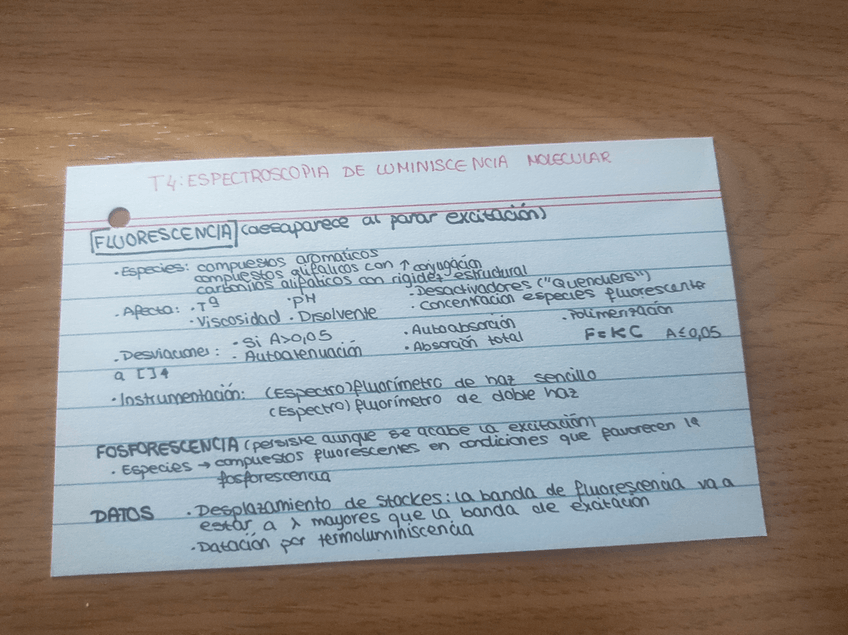 T4: ESPECTROSCOPIA DE LUMINISCENCIA MOLECULAR
FLUORESCENCIA (desaparece al parar excitación)
· Especies: compuestos aromáticos
compuestos alifáticos con ↑ conjugación
carbonilos alifáticos con rigidez estructural
· Afecta: · Tª · PH · Desactivadores ("Quenchers")
· Viscosidad · Disolvente · Concentración especies fluorescente
· Desviaciones: · Si A>0,05 · Autoabsorción · Polimerización
a [ ]↑ · Autoatenuación · Absorción total F=KC A≤0,05
· Instrumentación: (Espectro)fluorímetro de haz sencillo
(Espectro) fluorímetro de doble haz
FOSFORESCENCIA (persiste aunque se acabe la excitación)
· Especies → compuestos fluorescentes en condiciones que favorecen la
fosforescencia
DATOS · Desplazamiento de Stockes: la banda de fluorescencia va a
estar a λ mayores que la banda de excitación
· Datación por termoluminiscencia